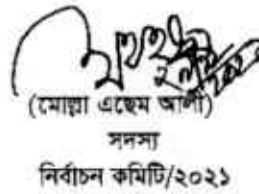 (মোল্লা এছেম আলী)
সদস্য
নির্বাচন কমিটি/২০২১